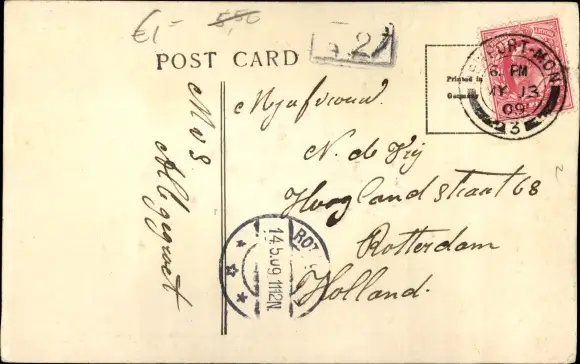 €1-
5,50
POST CARD
27
Printed in
Germany
NEWPORT-MON
6. PM
MY 13
09
3
Mejufvrouw.
N. de Vrij
Hoogland straat 68
Rotterdam
Holland.
ROT
14.5.09.11-12N.